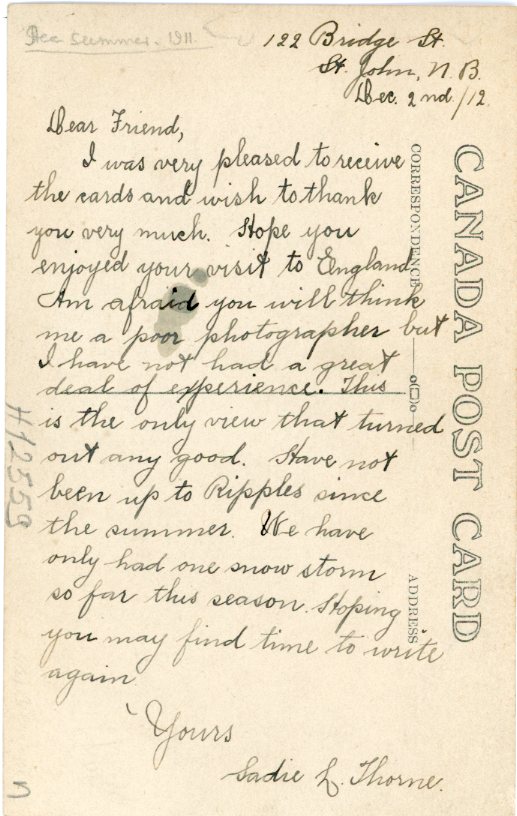 summer. 1911.
122 Bridge St.
St. John, N.B.
Dec. 2nd/12.
Dear Friend,
I was very pleased to receive
the cards and wish to thank
you very much. Hope you
enjoyed your visit to England.
Am afraid you will think
me a poor photographer but
I have not had a great
deal of experience. This
is the only view that turned
out any good. Have not
been up to Ripples since
the summer. We have
only had one snow storm
so far this season. Hoping
you may find time to write
again.
Yours
Sadie L. Thorne.
CANADA POST CARD
CORRESPONDENCE
ADDRESS
H2559